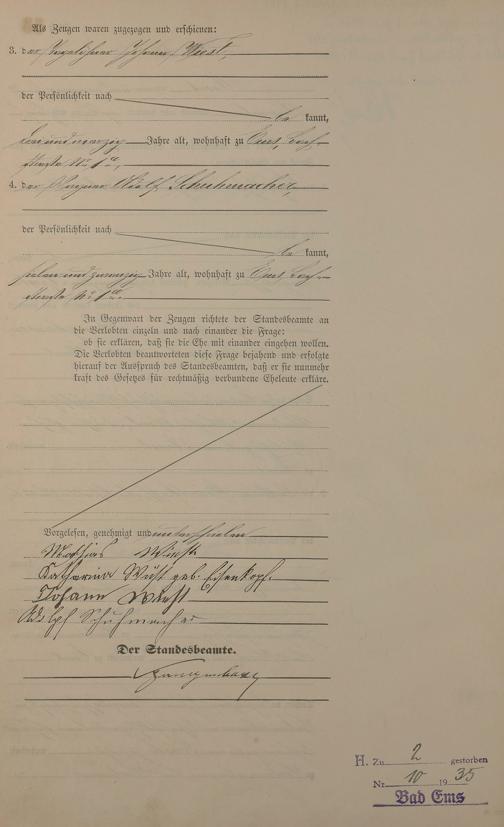 Als Zeugen waren zugezogen und erschienen:
3. der Johann Wüst,
der Persönlichkeit nach
be kannt,
Jahre alt, wohnhaft zu Ems, Bach-
4. der Adolf Schuhmacher,
der Persönlichkeit nach
be kannt,
Jahre alt, wohnhaft zu Ems, Bach-
In Gegenwart der Zeugen richtete der Standesbeamte an
die Verlobten einzeln und nach einander die Frage:
ob sie erklären, daß sie die Ehe mit einander eingehen wollen.
Die Verlobten beantworteten diese Frage bejahend und erfolgte
hierauf der Ausspruch des Standesbeamten, daß er sie nunmehr
kraft des Gesetzes für rechtmäßig verbundene Eheleute erkläre.
Vorgelesen, genehmigt und unterschrieben
Mathias Wüst
Katharina Wüst geb. Eisenkopf.
Johann Wüst
Adolf Schuhmacher
Der Standesbeamte.
H. Zu 2 gestorben
Nr. 10 1935
Bad Ems